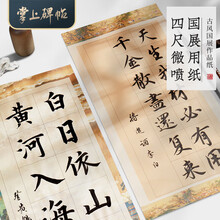 掌上碑帖
古风国展作品纸
国展用纸
四尺微喷
天生
必有用
千金散盡還復来
李白
白日依山
黄河入海